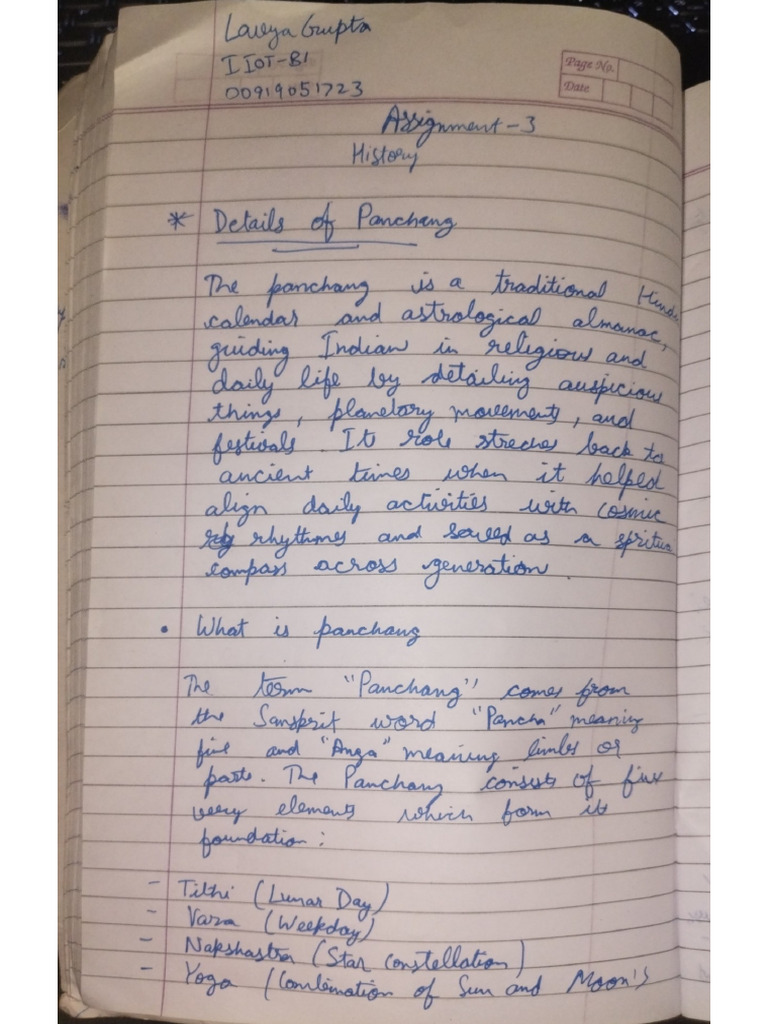 Lavya Gupta
IIOT-B1
00919051723
Page No.
Date
Assignment-3
History
* Details of Panchang
The panchang is a traditional Hindu
calendar and astrological almanac,
guiding Indian in religious and
daily life by detailing auspicious
things, planetory movements, and
festivals. Its role streches back to
ancient times when it helped
align daily activities with cosmic
rhythmes and served as a spritua
compass across generation.
• What is panchang
The term "Panchang" comes from
the Sanskrit word "Pancha" meaning
five and "Anga" meaning limbs or
parts. The Panchang consists of five
very elements which form its
foundation:
- Tithi (Lunar Day)
- Vara (Weekday)
- Nakshastra (Star Constellation)
- Yoga (Combination of Sun and Moon's